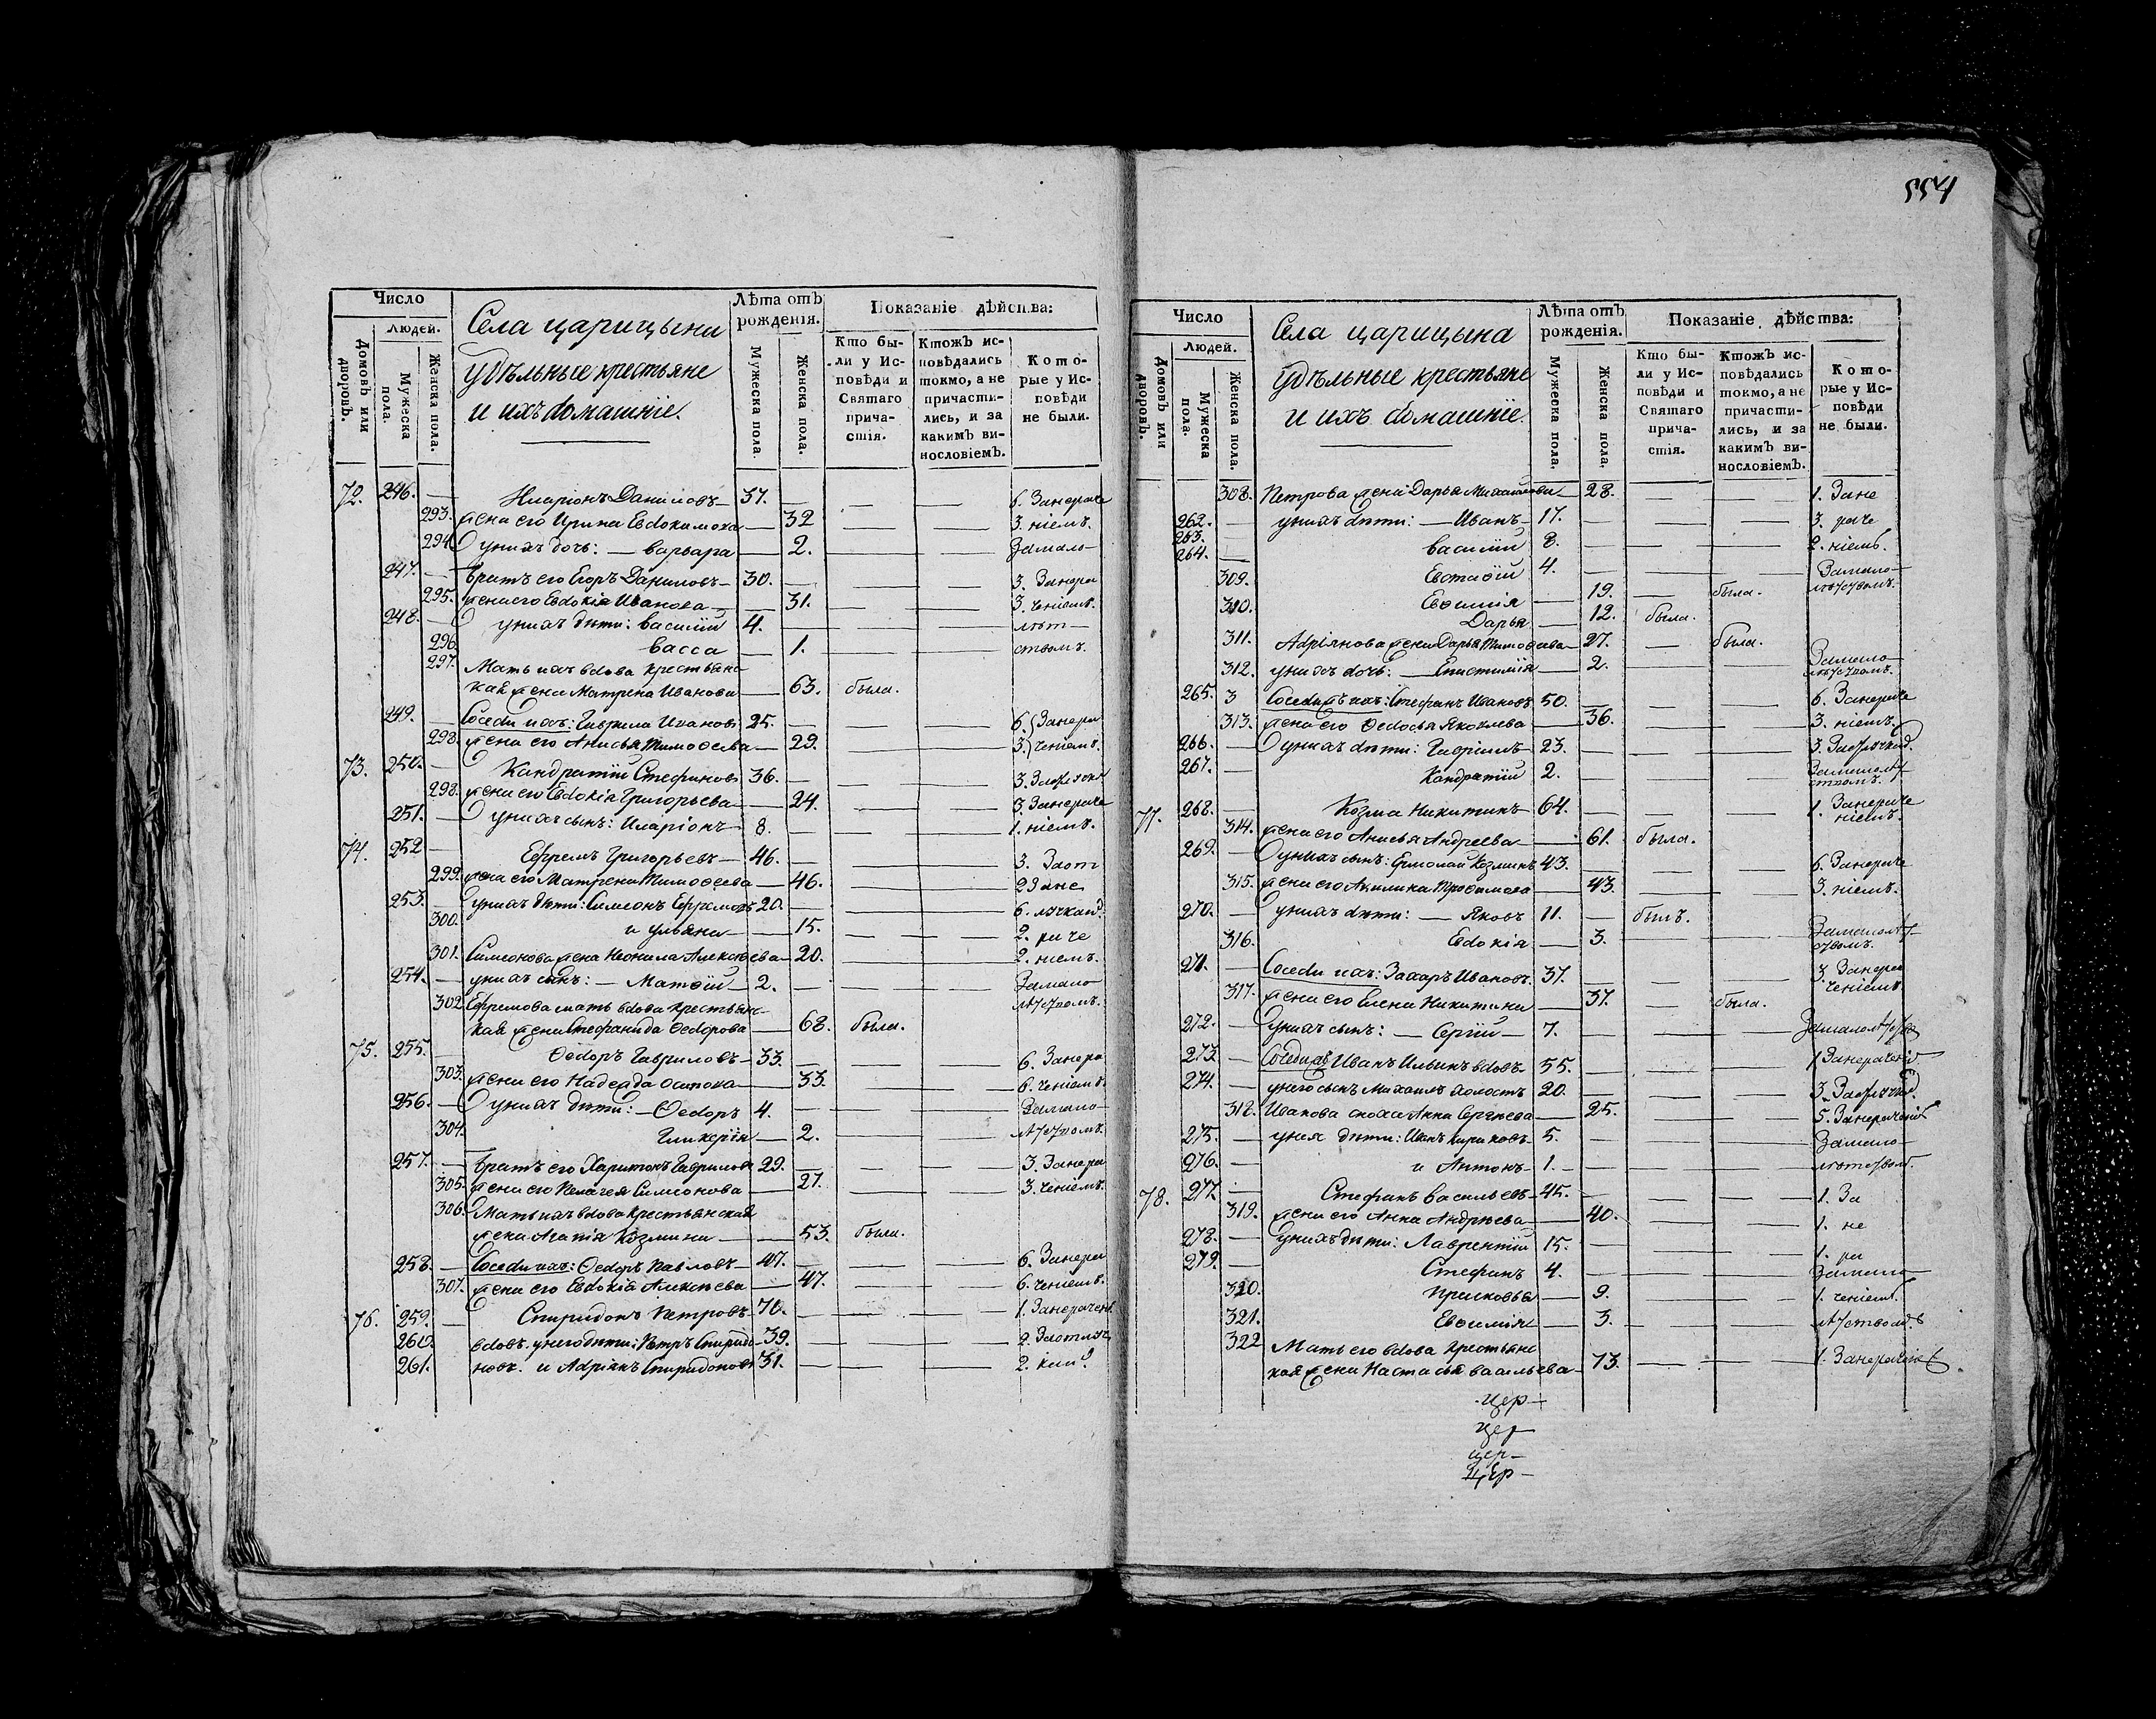 Число
Людей.
Домовъ или дворовъ.
Мужеска пола.
Женска пола.
Села царицына
удѣльные крестьяне
и ихъ домашніе.
Лѣта отъ рожденія.
Мужеска пола.
Женска пола.
Показаніе дѣйства:
Кто были у Исповѣди и Святаго причастія.
Ктожъ исповѣдались токмо, а не причастились, и за какимъ винословіемъ.
Которые у Исповѣди не были.
72. 246. — Иларіонъ Даниловъ — 37. — — — 6. Занераче
293. жена его Ирина Евдокимова — 32 — — 3. ніемъ.
294. у нихъ дочь: — варвара — 2. — — Замало
247. — братъ его Егоръ Даниловъ — 30. — — — 3. Занера
295. жена его Евдокія Иванова — 31. — — 3. ченіемъ.
248. — у нихъ дѣти: василій 4. — — — лѣт
296. васса — 1. — — ствомъ.
297. Мать ихъ вдова крестьянс
кая жена Матрена Иванова — 63. была.
249. — Соседи ихъ: Гаврила Иванов 25. — — — 6. Занера
298. жена его Анисья Тимоѳеева — 29. — — 3. ченіемъ.
73. 250. — Кандратій Стефановъ 36. — — — 3.
298. жена его Евдокія Григорьева — 24. — — 3. Занераче
251. — у нихъ сынъ: Иларіонъ 8. — — — 1. ніемъ.
74. 252 — Ефремъ Григорьевъ — 46. — — — 3. Заот
299. жена его Матрена Тимоѳеева — 46. — — 2 Зане
253. — у нихъ дѣти: Симеонъ Ефремовъ 20. — — — 6. лучкай
300. и ульяна — 15. — — 2. раче
301. Симеонова жена Неонила Алексѣева — 20. — — 2. ніемъ.
254. — у нихъ сынъ: — Матѳій — 2. — — — Замало
302. Ефремова мать вдова крестьянс
кая жена Стефанида Ѳедорова — 68. была.
75. 255. — Ѳедоръ Гавриловъ — 33. — — — 6. Занера
303. жена его Надежда Осипова — 33. — — 6. ченіемъ.
256. — у нихъ дѣти: — Ѳедоръ 4. — — — Замало
304. Гликерія — 2. — — лѣтствомъ.
257. — братъ его Харитонъ Гаврилов 29. — — — 3. Занера
305. жена его Пелагея Симеонова — 27. — — 3. ченіемъ.
306. Мать ихъ вдова крестьянская
жена Агапія Козмина — 53. была.
258. — Соседи ихъ: Ѳедоръ Павловъ — 47. — — — 6. Занера
307. жена его Евдокія Алексѣева — 47. — — 6. ченіемъ.
76. 259. — Спиридонъ Петровъ — 70. — — — 1. Занерачен
260. вдовъ. у него дѣти: Петръ Спиридо 39. — — — 2. Заотлуч
261. новъ. и Адріанъ Спиридоновъ 31. — — — 2. кай
554
Число
Людей.
Домовъ или дворовъ.
Мужеска пола.
Женска пола.
Села царицына
удѣльные крестьяне
и ихъ домашніе.
Лѣта отъ рожденія.
Мужеска пола.
Женска пола.
Показаніе дѣйства:
Кто были у Исповѣди и Святаго причастія.
Ктожъ исповѣдались токмо, а не причастились, и за какимъ винословіемъ.
Которые у Исповѣди не были.
308. Петрова жена Дарья Михайлова — 28. — — 1. Зане
262. — у нихъ дѣти: — Иванъ — 17. — — — 3. раче
263. — василій 8. — — — 2. ніемъ.
264. — Евстафій 4. — — — Замало
309. Евѳимія — 19. — была. лѣтствомъ.
310. Дарья — 12. была.
311. Адріянова жена Дарья Тимоѳеева — 27. — была.
312. у нихъ дочь: — Епистимія — 2. — — Замало
лѣтствомъ.
265. 3 Соседи ихъ: Стефанъ Ивановъ 50. — — — 6. Занераче
313. жена его Ѳедосья Яковлева — 36. — — 3. ніемъ.
266. — у нихъ дѣти: Гавріилъ — 23. — — — 3.
267. — Кандратій 2. — — — Замалолѣт
ствомъ.
77. 268. — Козма Никитинъ — 64. — — — 1. Занераче
ніемъ.
314. жена его Анисья Андреева — 61. была.
269. — у нихъ сынъ: Ермолай Козминъ 43. — — — 6. Занераче
315. жена его Акилина Трофимова — 43. — — 3. ніемъ.
270. — у нихъ дѣти: — Яковъ 11. — былъ.
316. Евдокія — 3. — — Замалолѣт
ствомъ.
271. — Соседи ихъ: Захаръ Ивановъ. 37. — — — 3. Занера
ченіемъ
317. жена его Елена Никитина — 37. — была.
272. — у нихъ сынъ: — Сергій — 7. — — — Замалолѣтств
273. — Соседъ ихъ Иванъ Ильинъ вдовъ 55. — — — 1 Занерачені
274. — у него сынъ Михаилъ холостъ 20. — — — 3.
318. Иванова сноха Анна Сергѣева — 25. — — 5. Занераченіе
275. — у нея дѣти: Иванъ 5. — — — Замало
276. — и Антонъ — 1. — — — лѣтством.
78. 277. — Стефанъ васильевъ — 45. — — — 1. За
319. жена его Анна Андрѣева — 40. — — 1. не
278. — у нихъ дѣти: Лаврентій 15. — — — 1. ра
279. — Стефанъ 4. — — — Замало
320. Прасковья — 9. — — 1. ченіем.
321. Евѳимія — 3. — — лѣтством.
322 Мать его вдова крестьянс
кая жена Настасья васильева — 73. — — 1. Занерачені
цер —
цер —
цер —
цер —